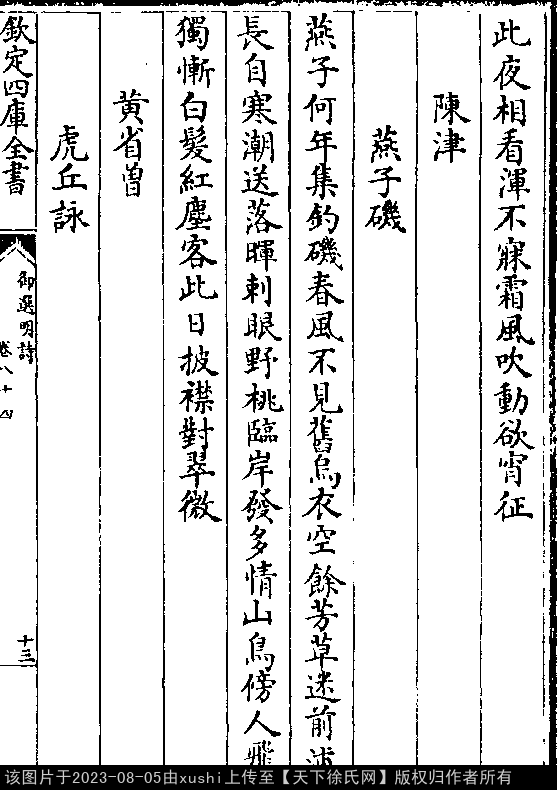 此夜相看渾不寐霜風吹動欲宵征
陳津
燕子磯
燕子何年集釣磯春風不見舊烏衣空餘芳草迷前浦
長自寒潮送落暉刺眼野桃臨岸發多情山鳥傍人飛
獨慚白髮紅塵客此日披襟對翠微
黄省曾
虎丘詠
欽定四庫全書
御選明詩
卷八十四
十三
该图片于2023-08-05由xushi上传至【天下徐氏网】版权归作者所有